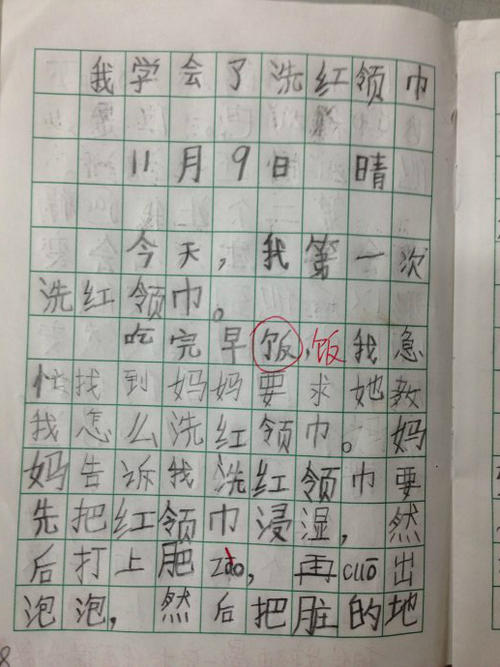 我学会了洗红领巾
11月9日 晴
今天，我第一次
洗红领巾。
吃完早饭，饭我急
忙找到妈妈要求她教
我怎么洗红领巾。妈
妈告诉我洗红领巾要
先把红领巾浸湿，然
后打上肥zào，再cuō出
泡泡，然后把脏的地
8